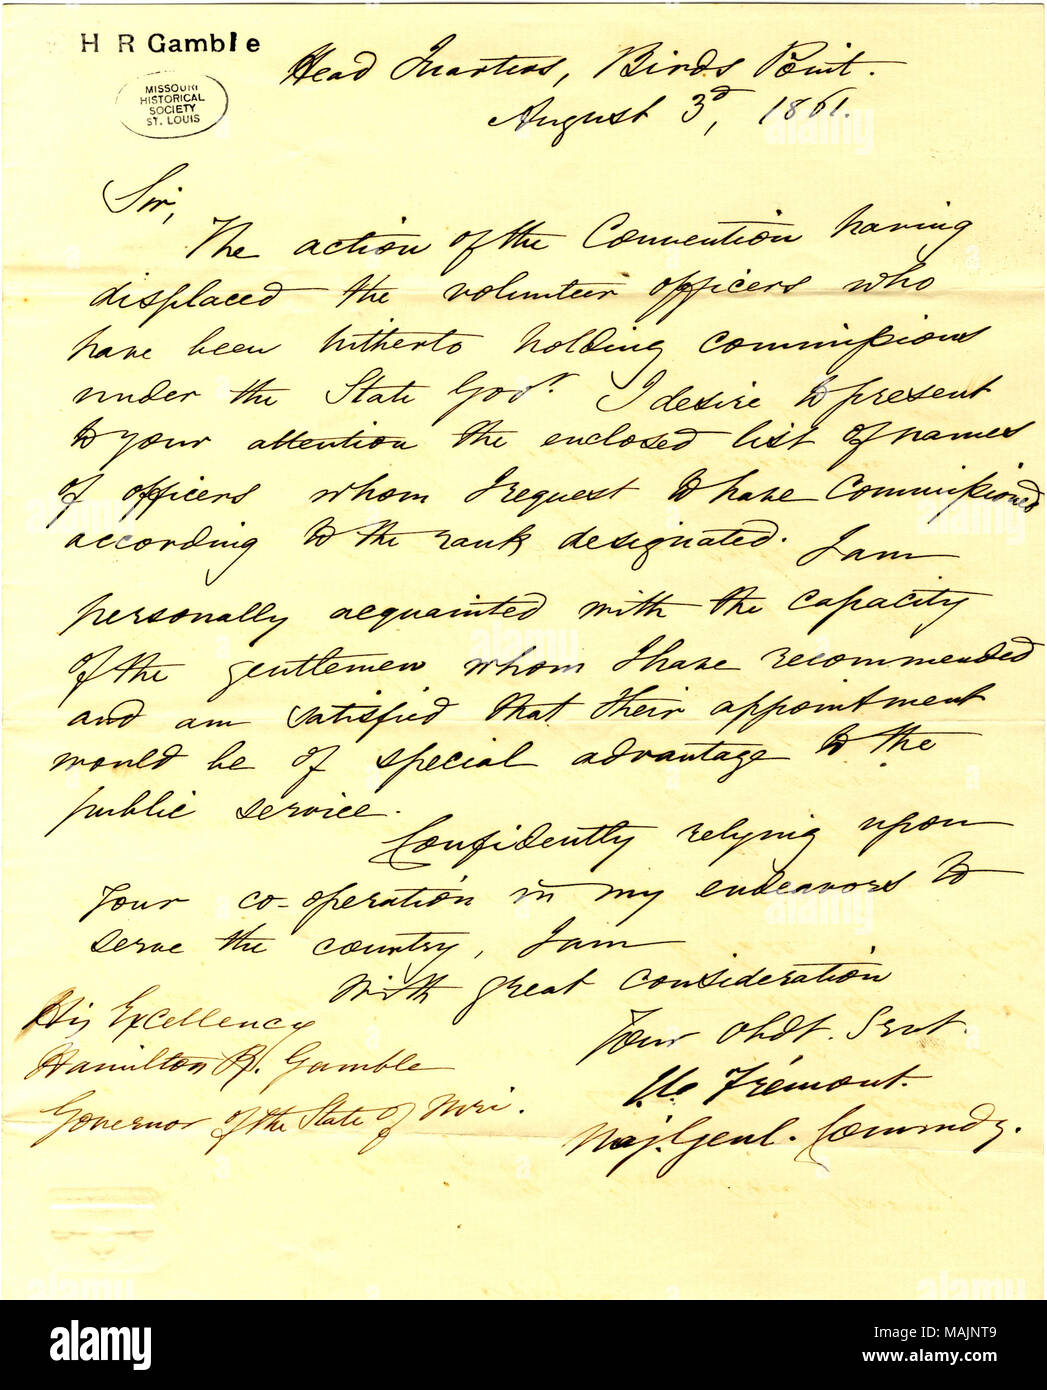 H R Gamble
MISSOURI
HISTORICAL
SOCIETY
ST. LOUIS
Head Quarters, Birds Point.
August 3d, 1861.
Sir,
The action of the Convention having
displaced the volunteer officers who
have been hitherto holding commissions
under the State Govr. I desire to present
to your attention the enclosed list of names
of officers whom I request to have Commissioned
according to the rank designated. I am
personally acquainted with the capacity
of the gentlemen whom I have recommended
and am satisfied that their appointment
would be of special advantage to the
public service.
Confidently relying upon
Your co-operation in my endeavors to
serve the country, I am
With great consideration
Your Obdt. Servt.
His Excellency
Hamilton R. Gamble
Governor of the State of Miri.
J.C. Frémont.
Maj. Genl. Commndg.
alamy
Image ID: MAJNT9
www.alamy.com